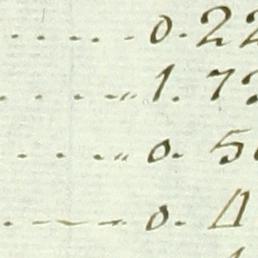 ..... 0.22
.... 1.7
.... 0.5
.... 0.4